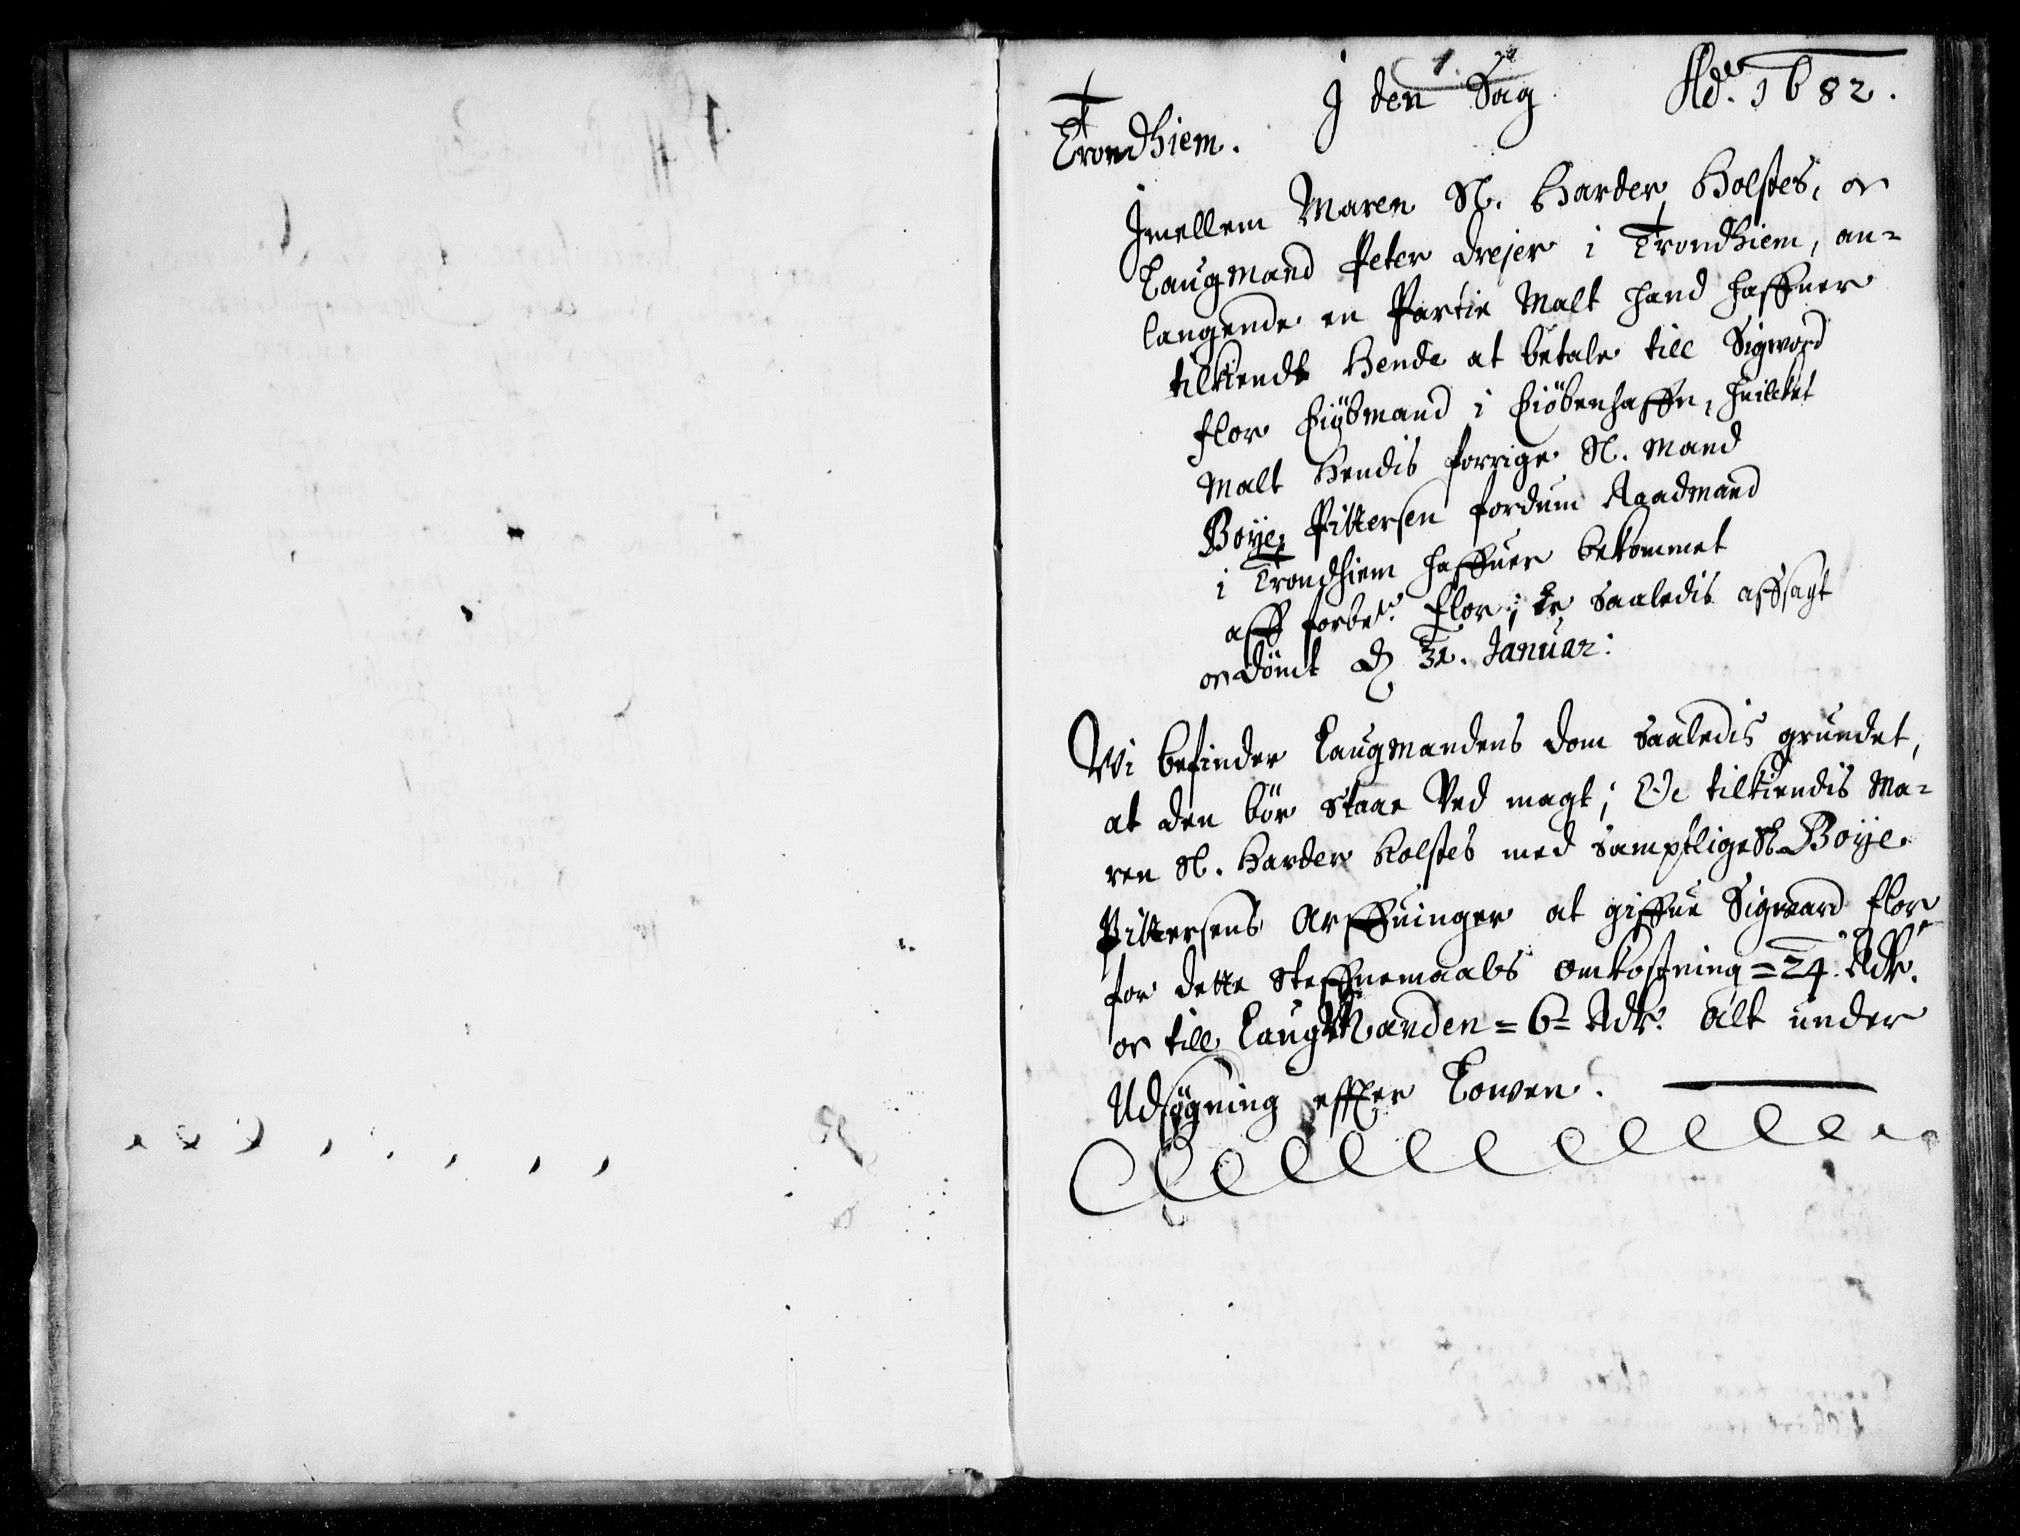 1.
I den Sag Ad. 1682.
Trondhiem.
Imellem Maren Sl. Harder Holstes, oc
Laugmand Peter Drejer i Trondhiem, an-
langende en Partie Malt hand haffuer
tilkiendt Hende at betale till Sigword
Flor Kiøbmand i Kiøbenhaffn, huilcket
Malt Hendis forrige Sl. Mand
Boye Pittersen fordum Raadmand
i Trondhiem haffuer bekommet
aff forbete Flor; Er saaledis affsagt
oc dømt d. 31. Januar:
Wi befinder Laugmandens dom saaledis grundet,
at den bør staae Ved magt; Oc tilkiendis Ma-
ren Sl. Harder Holstes med samptlige Sl. Boye
Pittersens Arffuinger at giffue Sigvaard Flor
for dette Steffnemaals omkostning = 24. Rdr.
oc till LaugManden = 6 = Rdr. alt under
Udsøgning effter Lowen.